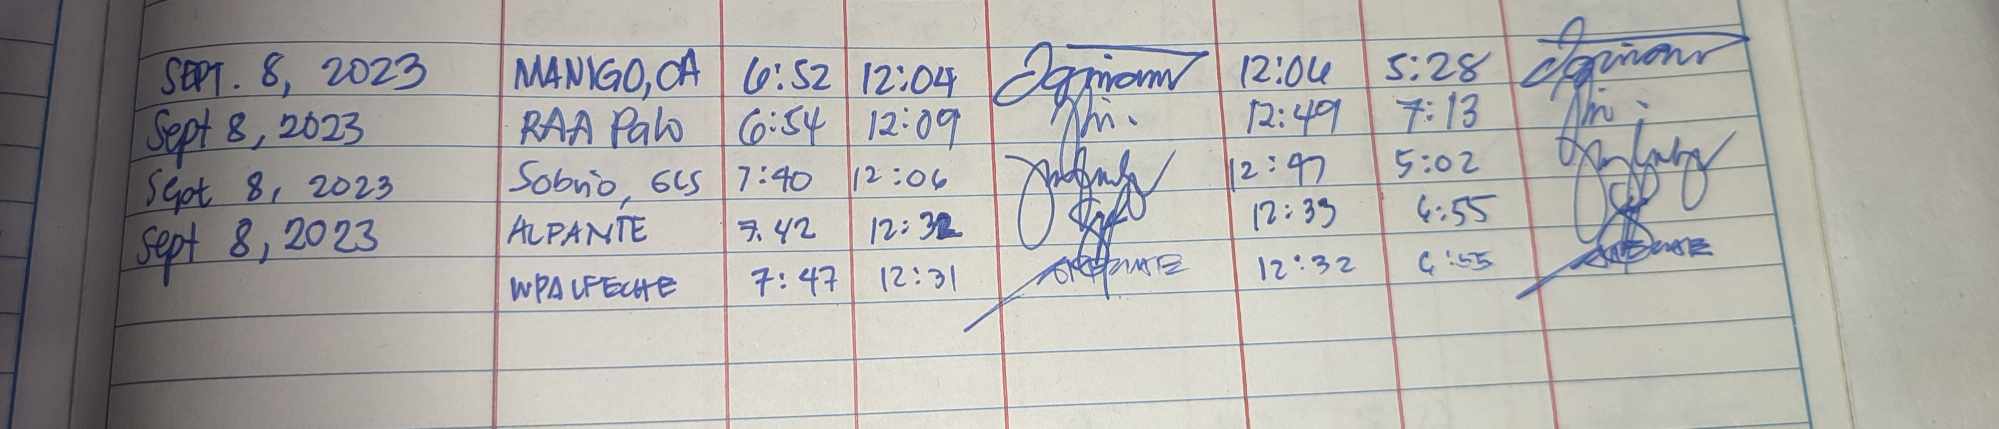 SEPT. 8, 2023 MANIGO, CA 6:52 12:04 12:06 5:28
Sept 8, 2023 RAA Palo 6:54 12:09 12:49 7:13
Sept 8, 2023 Sobrio, GCS 7:40 12:06 12:47 5:02
Sept 8, 2023 ALPANTE 7:42 12:32 12:33 6:55
WPALFECHE 7:47 12:31 12:32 6:55